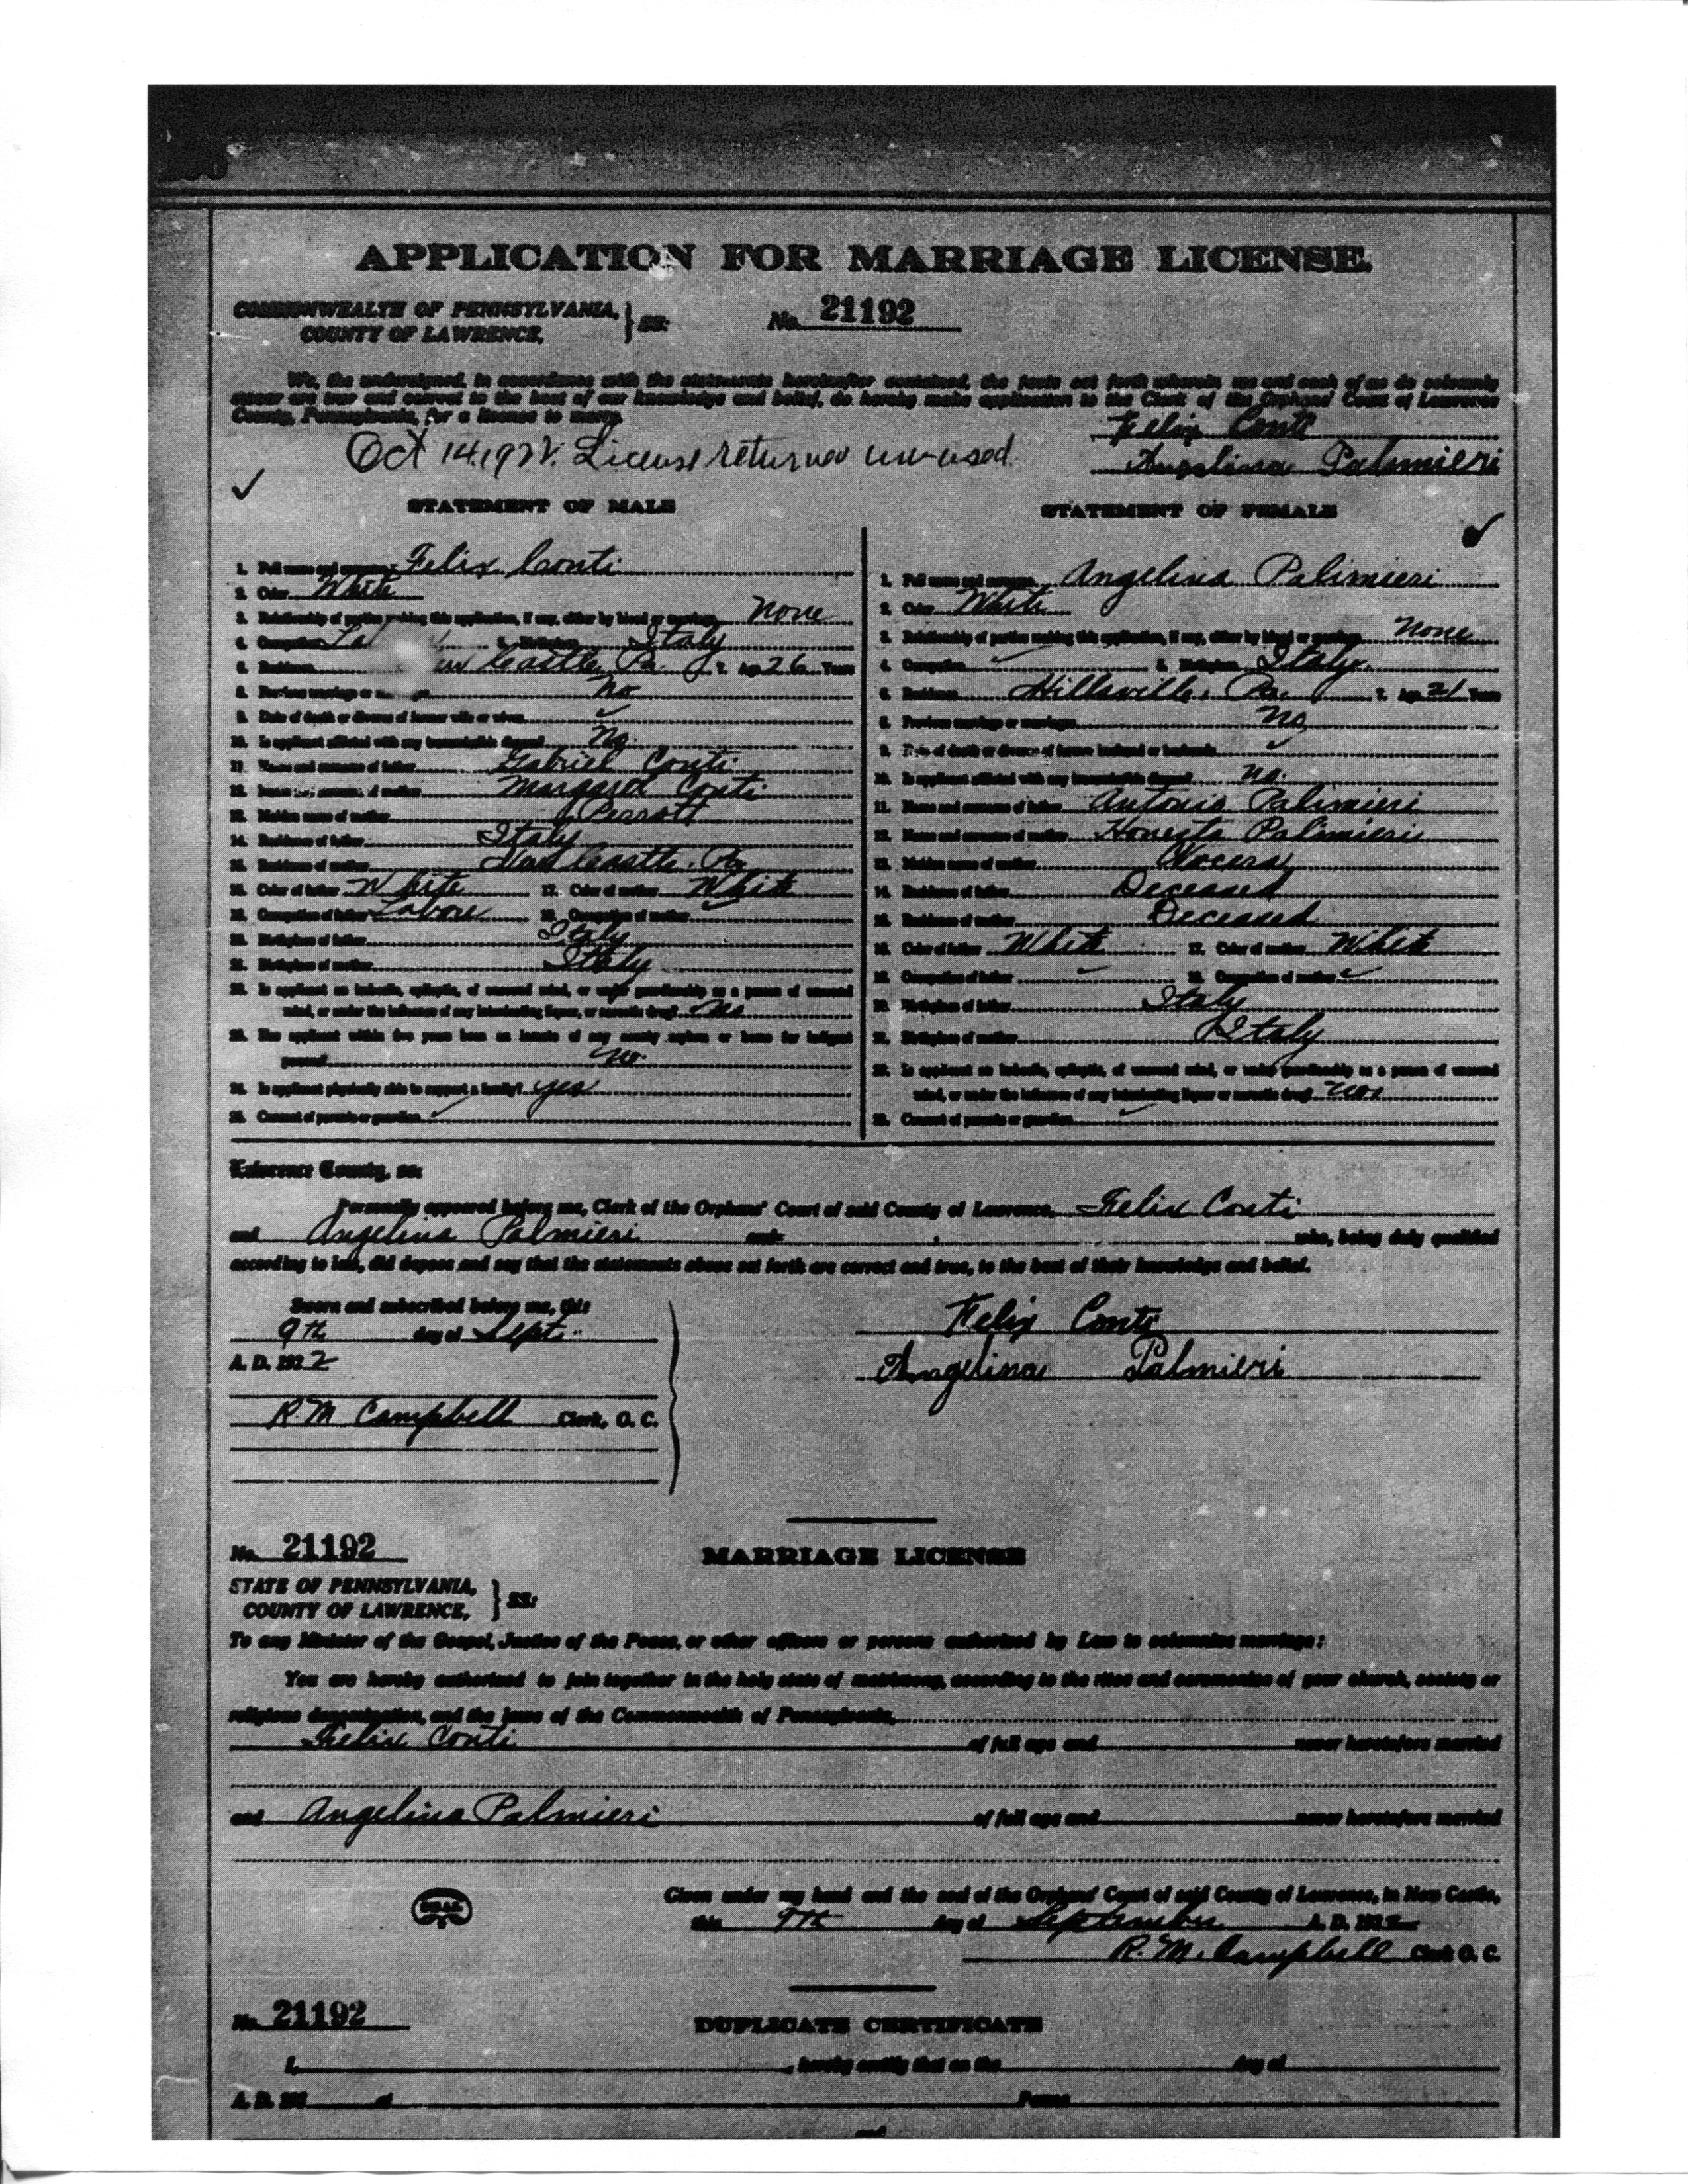 APPLICATION FOR MARRIAGE LICENSE
COMMONWEALTH OF PENNSYLVANIA,
COUNTY OF LAWRENCE, } SS: No. 21192
We, the undersigned, in accordance with the statements hereinafter contained, the facts set forth wherein we and each of us do solemnly
swear are true and correct to the best of our knowledge and belief, do hereby make application to the Clerk of the Orphans' Court of Lawrence
County, Pennsylvania, for a license to marry.
Felix Conti
Oct 14, 1922. License returned un-used.
Angelina Palmieri
STATEMENT OF MALE
1. Full name and surname Felix Conti
2. Color White
3. Relationship of parties making this application, if any, either by blood or marriage None
4. Occupation 5. Birthplace Italy
6. Residence Castle, Pa 7. Age 26 Years
8. Previous marriage or No
9. Date of death or divorce of former wife or wives
10. Is applicant afflicted with any transmissible disease No.
11. Name and surname of father Gabriel Conti
12. Name and surname of mother Margaret Conti
13. Maiden name of mother Perrott
14. Residence of father Italy
15. Residence of mother New Castle, Pa
16. Color of father White 17. Color of mother White
18. Occupation of father Labore 19. Occupation of mother
20. Birthplace of father Italy
21. Birthplace of mother Italy
22. Is applicant an imbecile, epileptic, of unsound mind, or under guardianship as a person of unsound
mind, or under the influence of any intoxicating liquor, or narcotic drug? No
23. Has applicant within five years been an inmate of any county asylum or home for indigent
persons No.
24. Is applicant physically able to support a family? yes
25. Consent of parents or guardian
STATEMENT OF FEMALE
1. Full name and surname Angelina Palimieri
2. Color White
3. Relationship of parties making this application, if any, either by blood or marriage None
4. Occupation 5. Birthplace Italy.
6. Residence Hillsville, Pa. 7. Age 21 Years
8. Previous marriage or marriages No
9. Date of death or divorce of former husband or husbands
10. Is applicant afflicted with any transmissible disease No.
11. Name and surname of father Antonio Palimieri
12. Name and surname of mother Honesta Palimieri
13. Maiden name of mother
14. Residence of father Deceased
15. Residence of mother Deceased
16. Color of father White 17. Color of mother White
18. Occupation of father 19. Occupation of mother
20. Birthplace of father Italy
21. Birthplace of mother Italy
22. Is applicant an imbecile, epileptic, of unsound mind, or under guardianship as a person of unsound
mind, or under the influence of any intoxicating liquor or narcotic drug?
23. Consent of parents or guardian
Lawrence County, ss:
Personally appeared before me, Clerk of the Orphans' Court of said County of Lawrence, Felix Conti
and Angelina Palmieri and who, being duly qualified
according to law, did depose and say that the statements above set forth are correct and true, to the best of their knowledge and belief.
Sworn and subscribed before me, this
9th day of Sept.
A. D. 1922
R. M Campbell Clerk, O. C.
Felix Conti
Angelina Palmieri
No. 21192 MARRIAGE LICENSE
STATE OF PENNSYLVANIA,
COUNTY OF LAWRENCE, } SS:
To any Minister of the Gospel, Justice of the Peace, or other officers or persons authorized by Law to solemnize marriage:
You are hereby authorized to join together in the holy state of matrimony, according to the rites and ceremonies of your church, society or
religious denomination, and the laws of the Commonwealth of Pennsylvania,
Felix Conti of full age and never heretofore married
and Angelina Palmieri of full age and never heretofore married
SEAL
Given under my hand and the seal of the Orphans' Court of said County of Lawrence, in New Castle,
this 9th day of September A. D. 1922
R. M. Campbell Clerk O. C.
No. 21192 DUPLICATE CERTIFICATE
I, , hereby certify that on the day of
A. D. 192 at Penna.
and